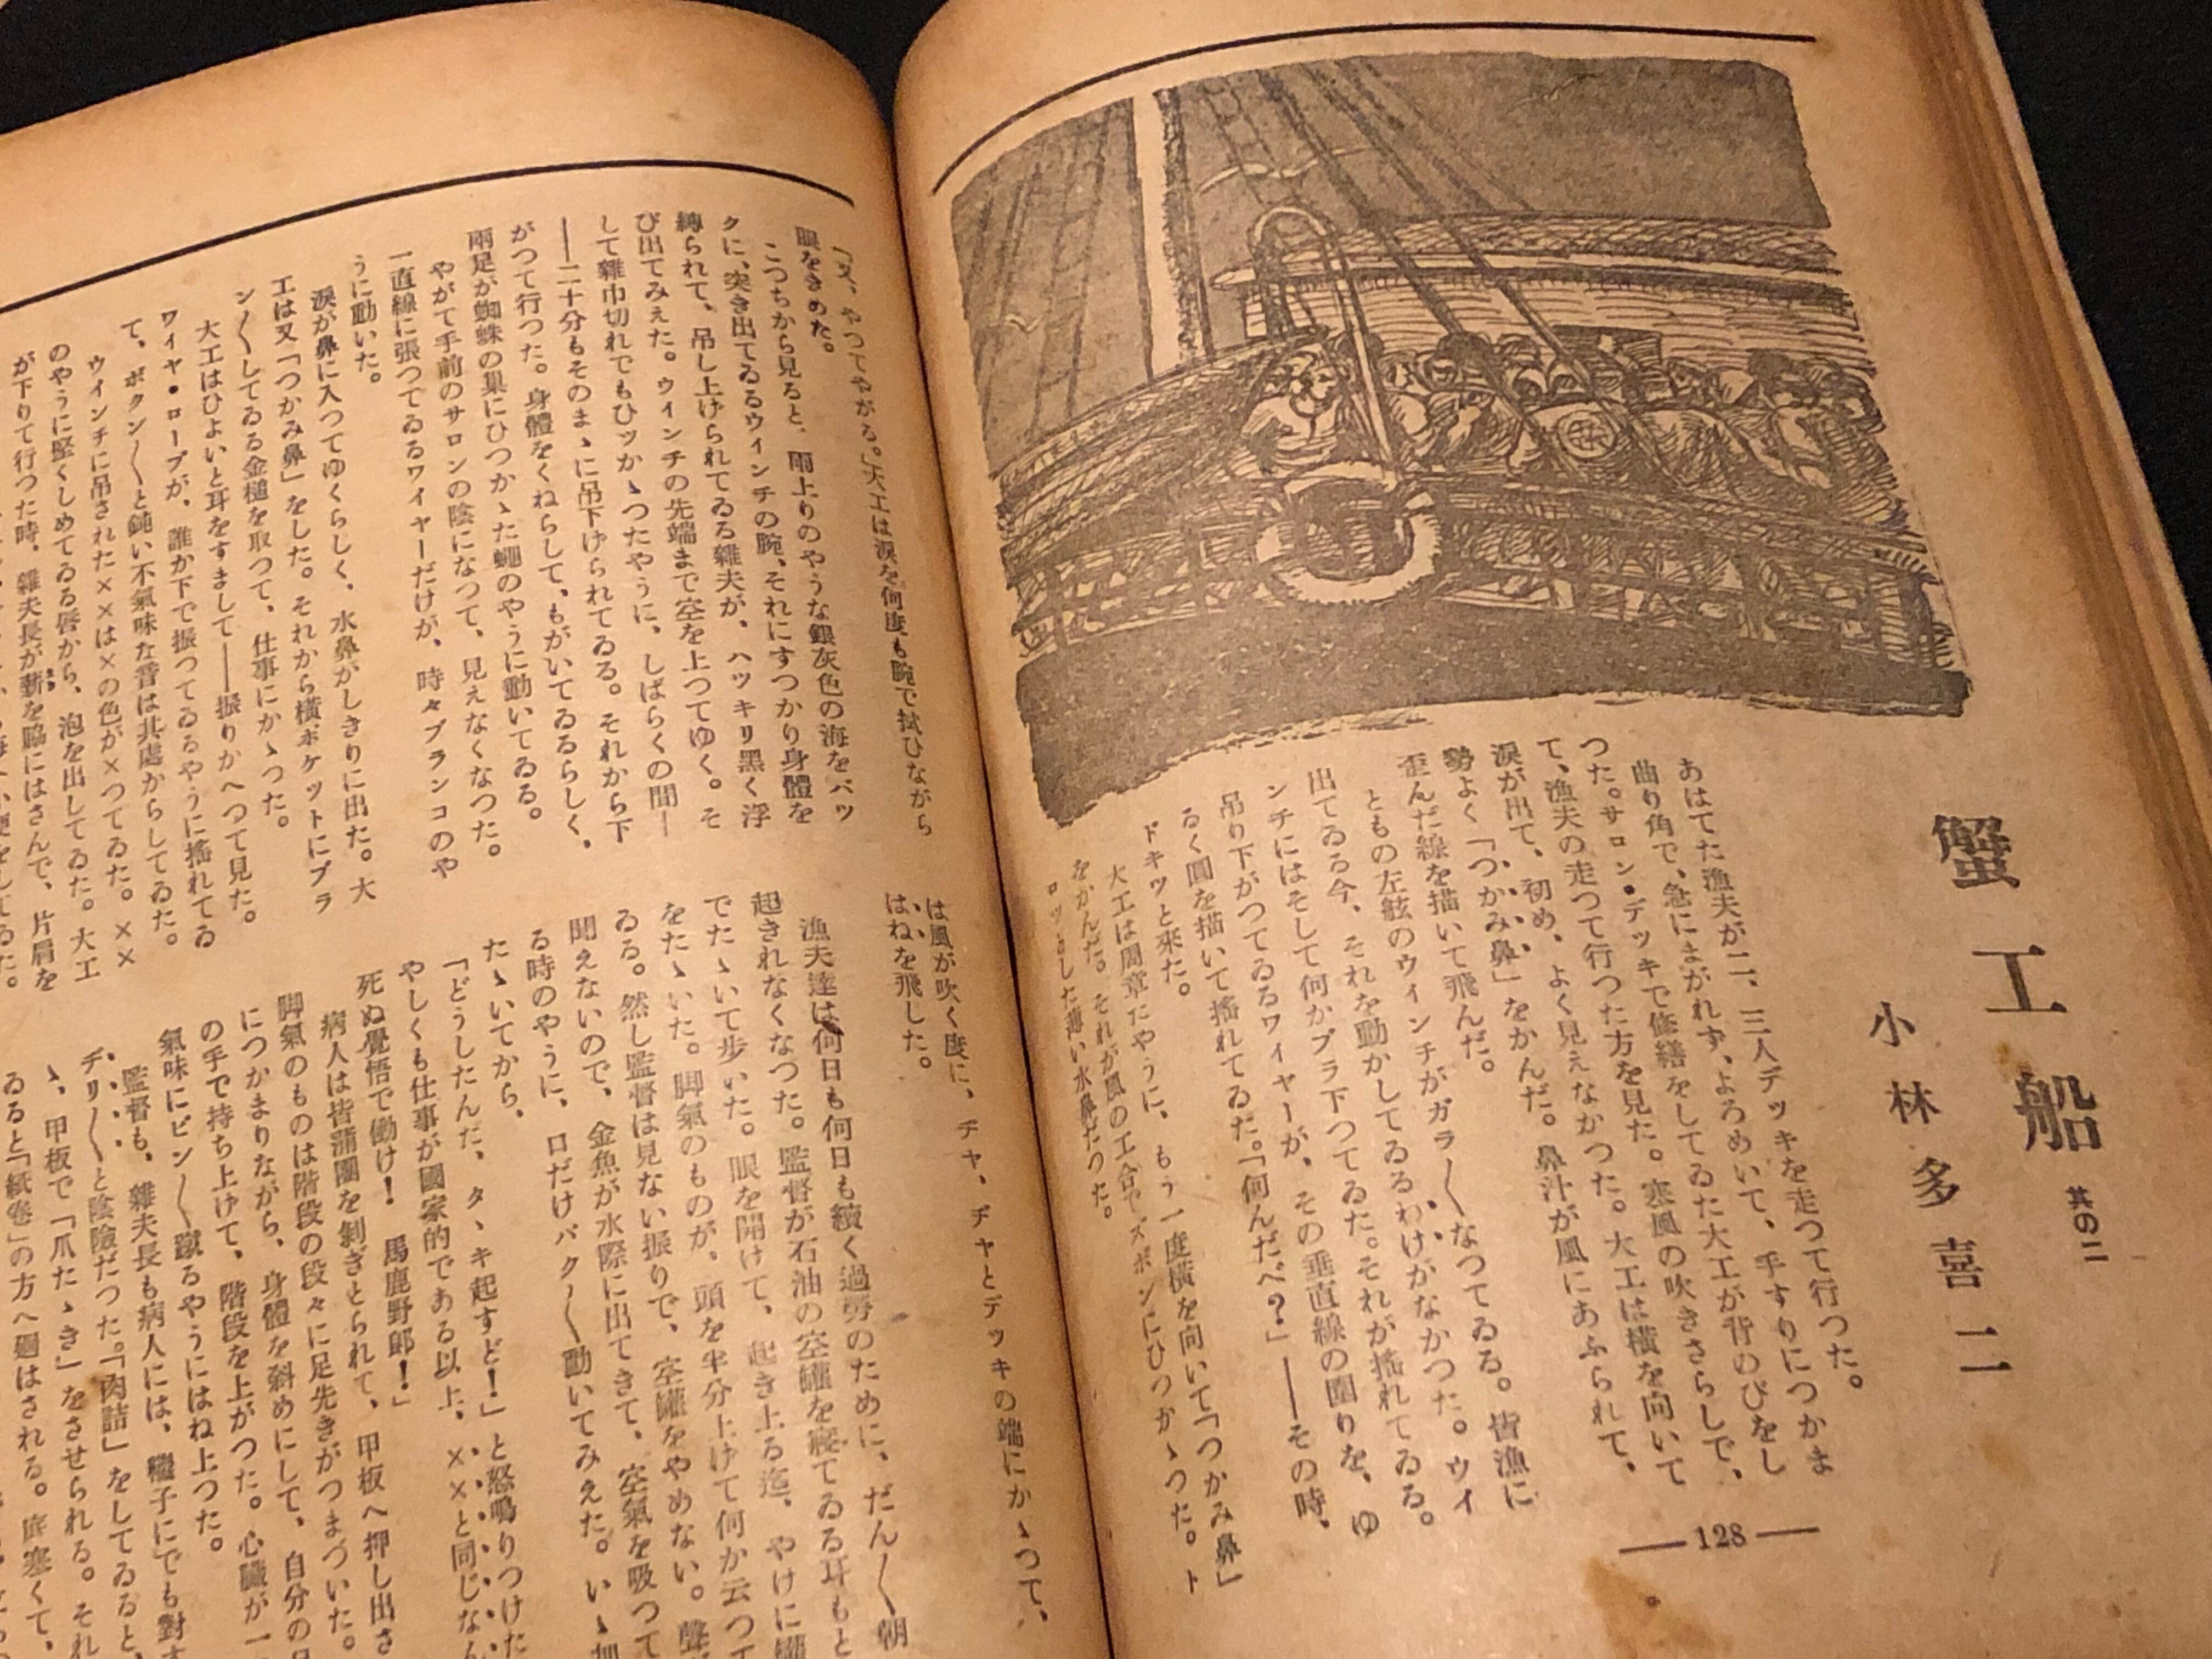 蟹工船 其の二
小林多喜二
あはてた漁夫が二、三人デッキを走つて行つた。
曲り角で、急にまがれず、よろめいて、手すりにつかま
つた。サロン・デッキで修繕をしてゐた大工が背のびをし
て、漁夫の走つて行つた方を見た。寒風の吹きさらしで、
涙が出て、初め、よく見えなかつた。大工は横を向いて
勢よく「つかみ鼻」をかんだ。鼻汁が風にあふられて、
歪んだ線を描いて飛んだ。
ともの左舷のウィンチがガラ〱なつてゐる。皆漁に
出てゐる今、それを動かしてゐるわけがなかつた。ウイ
ンチにはそして何かブラ下つてゐた。それが搖れてゐる。
吊り下がつてゐるワイヤーが、その垂直線の圍りを、ゆ
るく圓を描いて搖れてゐた。「何んだべ?」――その時、
ドキッと來た。
大工は周章たやうに、もう一度橫を向いて「つかみ鼻」
をかんだ。それが風の工合でズボンにひつかゝつた。ト
ロッとした薄い水鼻だつた。
―128―
「又、やつてやがる。」大工は涙を何度も腕で拭ひながら
眼をきめた。
こつちから見ると、雨上りのやうな銀灰色の海をバッ
クに、突き出てゐるウィンチの腕、それにすつかり身體を
縛られて、吊し上げられてゐる雜夫が、ハッキリ黑く浮
び出てみえた。ウィンチの先端まで空を上つてゆく。そ
して雜巾切れでもひッかゝつたやうに、しばらくの間―
―二十分もそのまゝに吊下げられてゐる。それから下
がつて行つた。身體をくねらして、もがいてゐるらしく、
兩足が蜘蛛の巢にひつかゝた蠅のやうに動いてゐる。
やがて手前のサロンの陰になつて、見えなくなつた。
一直線に張つてゐるワイヤーだけが、時々ブランコのや
うに動いた。
涙が鼻に入つてゆくらしく、水鼻がしきりに出た。大
工は又「つかみ鼻」をした。それから橫ポケットにブラ
ン〱してゐる金槌を取つて、仕事にかゝつた。
大工はひよいと耳をすまして――振りかへつて見た。
ワイヤ・ロープが、誰か下で振つてゐるやうに搖れてゐ
て、ボクン〱と鈍い不氣味な音は其處からしてゐた。
ウインチに吊された××は×の色が×つてゐた。××
のやうに堅くしめてゐる唇から、泡を出してゐた。大工
が下りて行つた時、雜夫長が薪を脇にはさんで、片肩を
は風が吹く度に、チャ、チャとデッキの端にかゝつて、
はねを飛した。
漁夫達は何日も何日も續く過勞のために、だん〱朝
起きれなくなつた。監督が石油の空罐を寢てゐる耳もと
でたゝいて歩いた。眼を開けて、起き上る迄、やけに罐
をたゝいた。脚氣のものが、頭を半分上げて何か云つて
ゐる。然し監督は見ない振りで、空罐をやめない。聲が
聞えないので、金魚が水際に出てきて、空氣を吸つて
る時のやうに、口だけパク〱動いてみえた。いゝ加
たゝいてから、
「どうしたんだ、タヽキ起すど!」と怒鳴りつけた
やしくも仕事が國家的である以上、××と同じなん
死ぬ覺悟で働け! 馬鹿野郎!」
病人は皆蒲團を剝ぎとられて、甲板へ押し出さ
脚氣のものは階段の段々に足先きがつまづいた。
につかまりながら、身體を斜めにして、自分の
の手で持ち上げて、階段を上がつた。心臟が一
氣味にピン〱蹴るやうにはね上つた。
監督も、雜夫長も病人には、繼子にでも對す
ヂリ〱と陰險だつた。「肉詰」をしてゐると、
ゝ、甲板で「爪たゝき」をさせられる。それ
ゐると「紙卷」の方へ廻はされる。底寒くて、